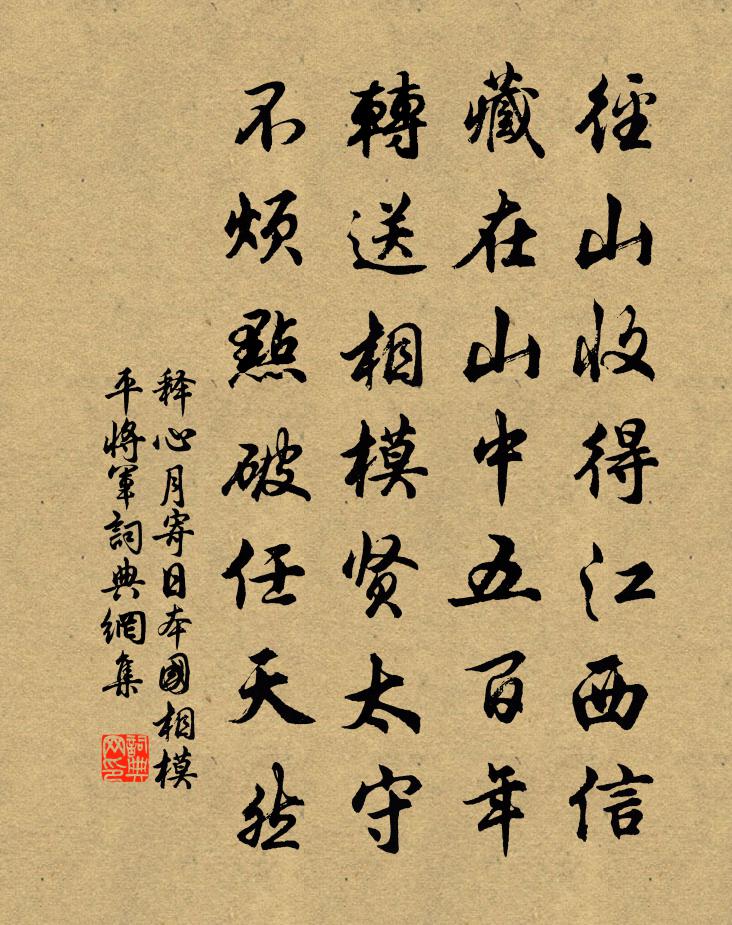 徑山收得江西信
藏在山中五百年
轉送相模贤太守
不烦點破任天然
释心月寄日本國相模
平將軍詞典網集
詞典
网印